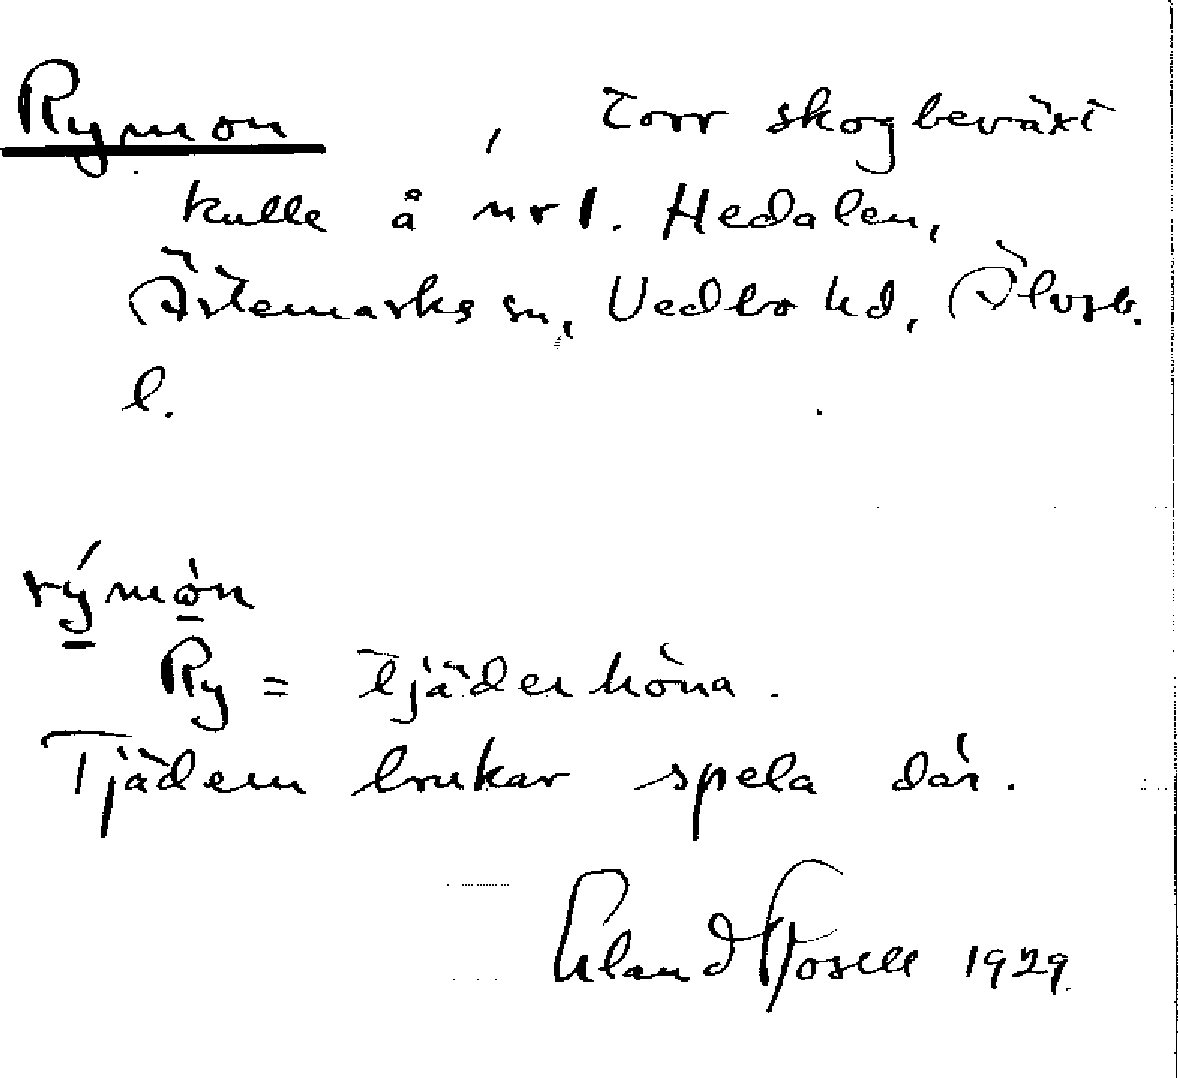 Rymon , torr skogbeväxt
kulle å nr 1. Hedalen,
Ärtemarks sn, Vedbo hd, Älvsb.
l.
rý̱mò̱n
Ry = tjäderhöna.
Tjädern brukar spela där.
Erland Rosell 1929.